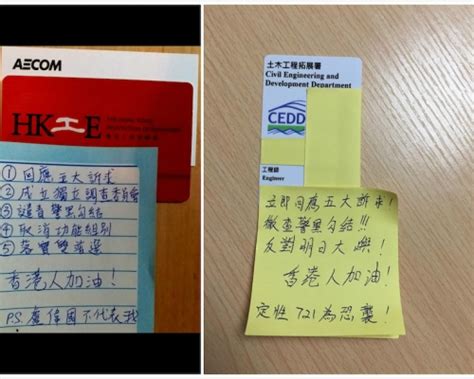 AECOM
HK工E
① 回應五大訴求
② 成立獨立調查委員會
③ 查警黑勾結
④ 取消功能組別
⑤ 落實雙普選
香港人加油!
P.S. 盧偉國不代表我
土木工程拓展署
Civil Engineering and
Development Department
CEDD
工程師
Engineer
立即回應五大訴求!
徹查警黑勾結!!!
反對明日大嶼!
香港人加油!
定性721為恐襲!